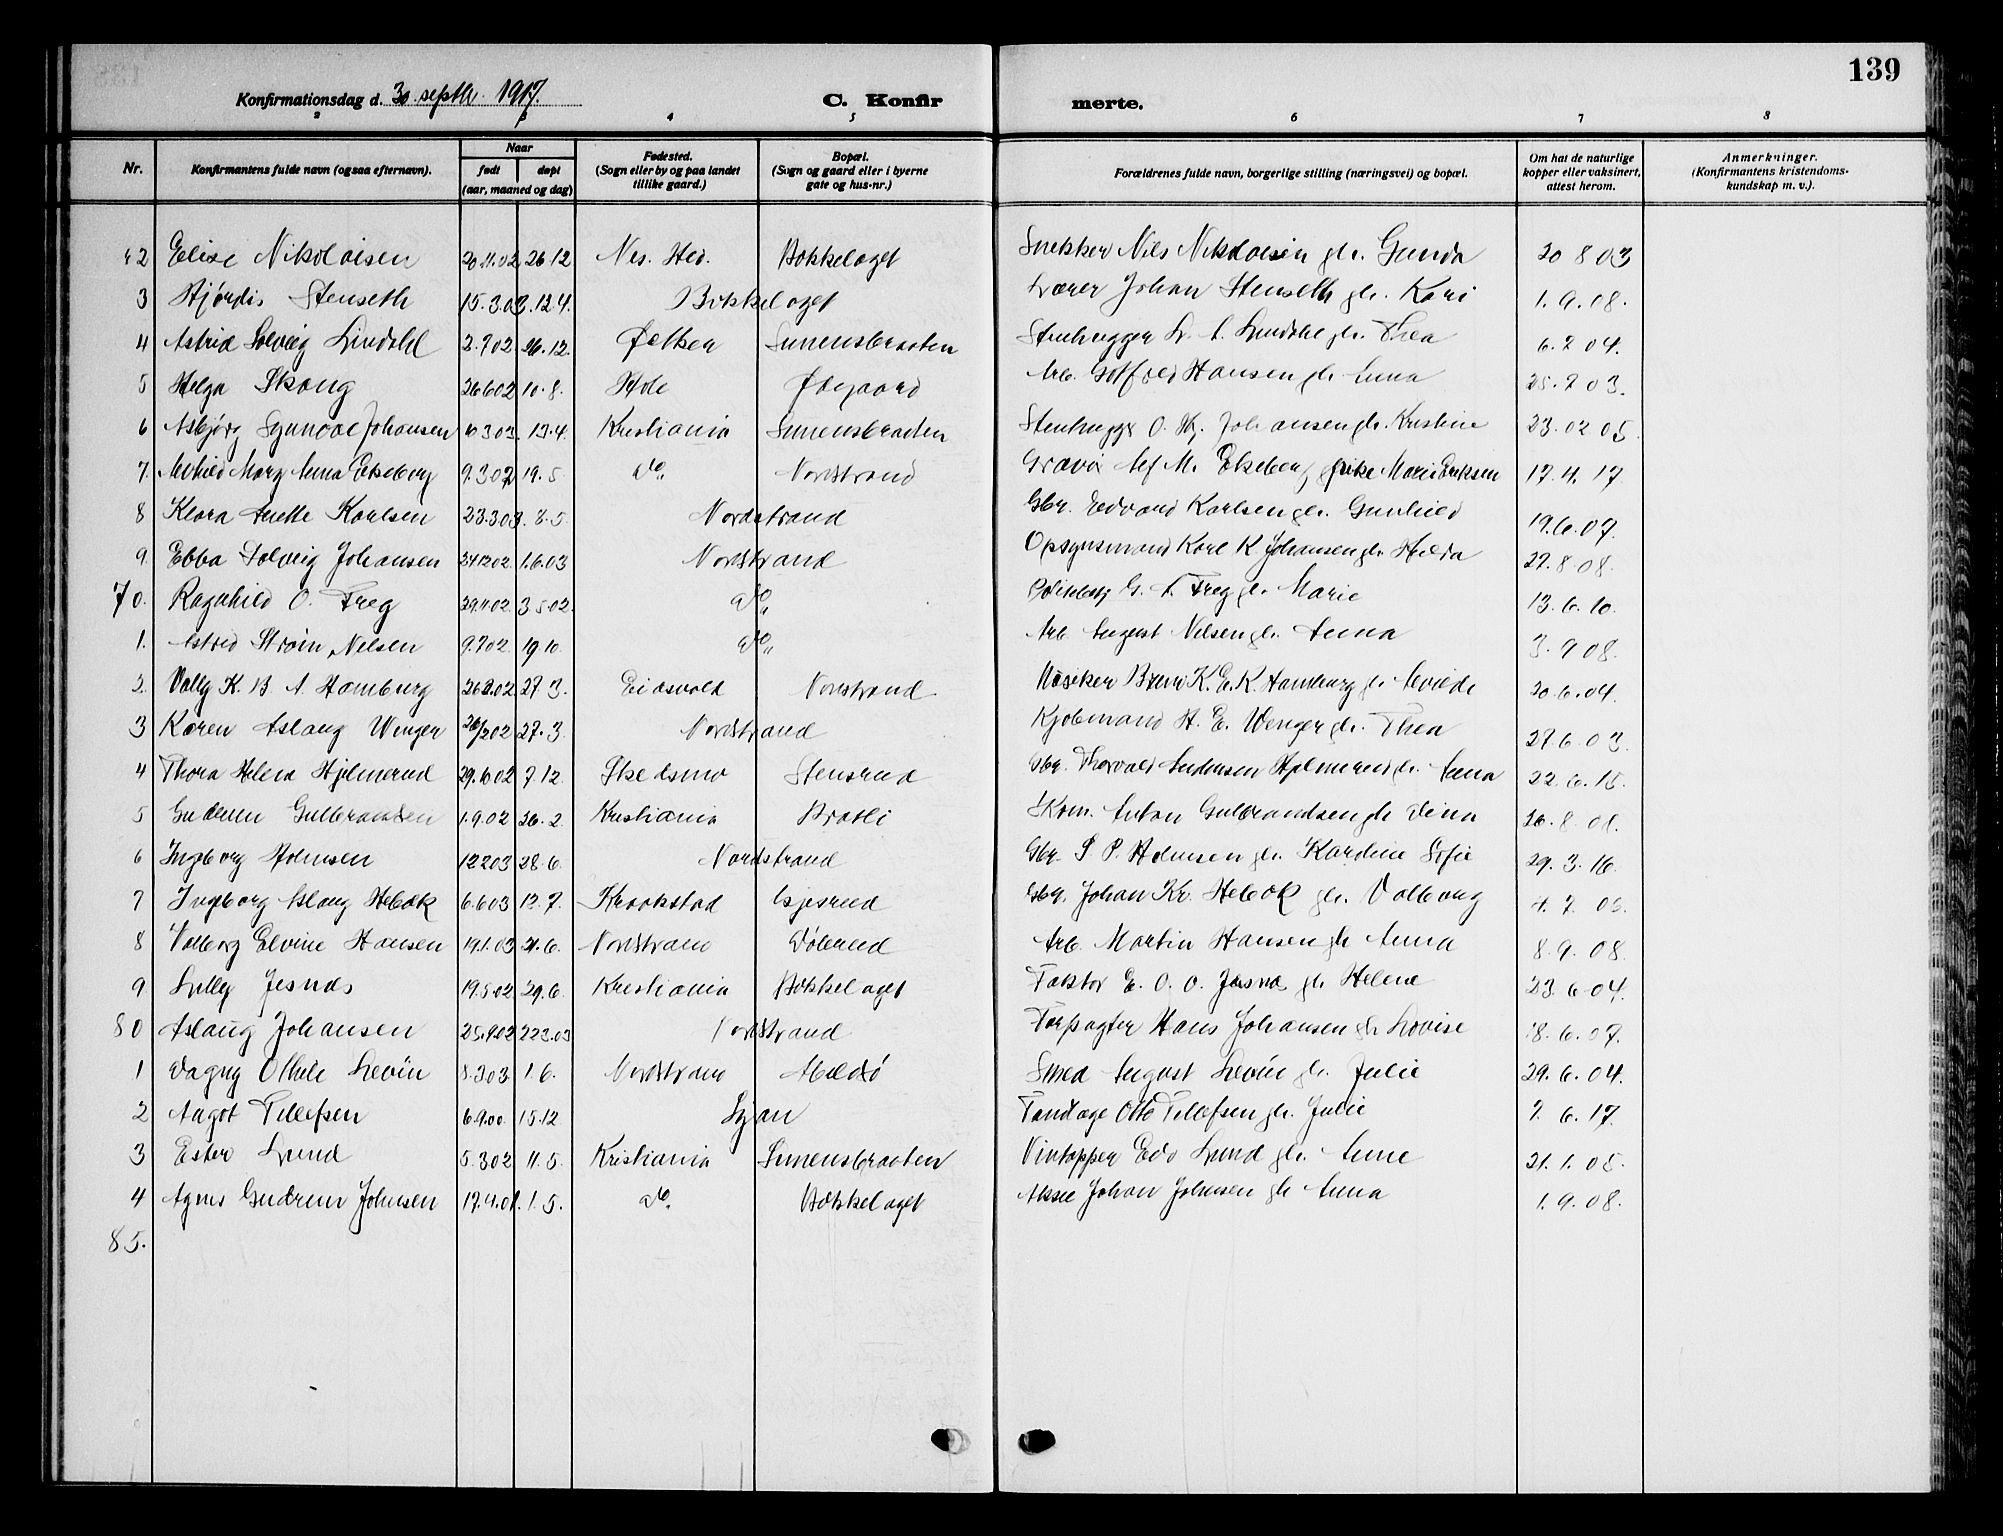 139
Konfirmationsdag d. 30. septbr. 1917.
C. Konfirmerte.
2 3 4 5 6 7 8
Nr. Konfirmantens fulde navn (ogsaa efternavn). Naar født døpt (aar, maaned og dag) Fødested. (Sogn eller by og paa landet tillike gaard.) Bopæl. (Sogn og gaard eller i byerne gate og hus-nr.) Forældrenes fulde navn, borgerlige stilling (næringsvei) og bopæl. Om hat de naturlige kopper eller vaksinert, attest herom. Anmerkninger. (Konfirmantens kristendomskundskap m. v.).
62 Elise Nikolaisen 20.11.02 26.12 Nes. Hed. Bækkelaget Snekker Nils Nikolaisen gh. Gunda 20 8 03
3 Hjørdis Stenseth 15.3.03. 12.4. Bækkelaget Lærer Johan Stenseth gh. Kari 1.9.08.
4 Astrid Solveig Lindahl 2.9.02 26.12. Simensbraaten Stenhugger Lindahl gh. Thea 6.2 04.
5 Helga Skaug 26 6 02 10.8. Hole Ødegaard Arb. Gotfred Hansen gh. Anna 25.2 03.
6 Asbjørg Synnøve Johansen 6 3 03. 13.4. Kristiania Simensbraaten Stenhugger O. Hj. Johansen gh. Kristine 23.02 05.
7. Marg Anna Ekeberg 9.3 02 19.5 do. Nordstrand Gravør Alf M. Ekeberg, pike Marie Eriksen 17.4.17
8 Klara Anette Karlsen 23.3 03. 3.5. Nordstrand Gbr. Edvard Karlsen gh. Gunhild 19.6.07.
9. Ebba Solveig Johansen 24 12 02. 1.6.03 Nordstrand Opsynsmand Karl K. Johansen gh. Hilda 27.8 08.
70. Ragnhild O. Freg 29.11.02. 3 5 02. do. Freg gh. Marie 13.6.10.
1. Astrid Strøm Nelsen 9.7 02 19 10. do. Arb. August Nilsen gh. Anna 3.9 08.
2. Vally K. B. A. Hamburg 26 2.02 27 3. Eidsvold Nordstrand Musiker K. E. K. Hamburg gh. 20.6.04.
3 Karen Aslaug Wenger 26/2 02 27.3. Nordstrand Kjøbmand H. E. Wenger gh. Thea 27 6 03.
4 Thora Helena Hjelmerud 29.6 02 7.12. Skedsmo Stensrud Gbr. Thorvald Andersen Hjelmerud gh. Anna 22.6.15.
5 Gudrun Gulbrandsen 1.9.02 26.2. Kristiania Bratli Kom. Anton Gulbrandsen gh. Dina 26.8 08.
6 Ingeborg Holmsen 12 2 03 28.6. Nordstrand Gbr. S. P. Holmsen gh. Karoline Sofie 29.3.16.
7 Ingeborg Aslaug Hebæk 6.6 03 12.7. Kraakstad Gjersrud Gbr. Johan Kr. Hebæk gh. Valborg 4.7. 03.
8 Valborg Elvine Hansen 19.1.03 21.6. Nordstrand Dølerud Arb. Martin Hansen gh. Anna 8.9.08.
9 Lilly Jesnæs 19.5 02 29.6. Kristiania Bækkelaget Faktor E. O. O. Jesnæs gh. Helene 23.6 04.
80 Aslaug Johansen 25.9.02 22 3.03 Nordstrand Forpagter Hans Johansen gh. Lovise 18.6.07.
1 Dagny Othile Levin 8.3 03. 1 6. Nordstrand Malmø Smed August Levin gh. Julie 29.6.04.
2 Aagot Tellefsen 6.9.00. 15 12 Ljan Tandlæge Otto Tellefsen gh. Julie 2.6.17.
3 Ester Lund 5.3 02 11.5. Kristiania Simensbraaten Vintapper Edv Lund gh. Anne 21.1.05.
4 Agnes Gudrun Johnsen 17.4.01. 1.5. do. Bækkelaget Johan Johnsen gh. Anna 1.9.08.
85.